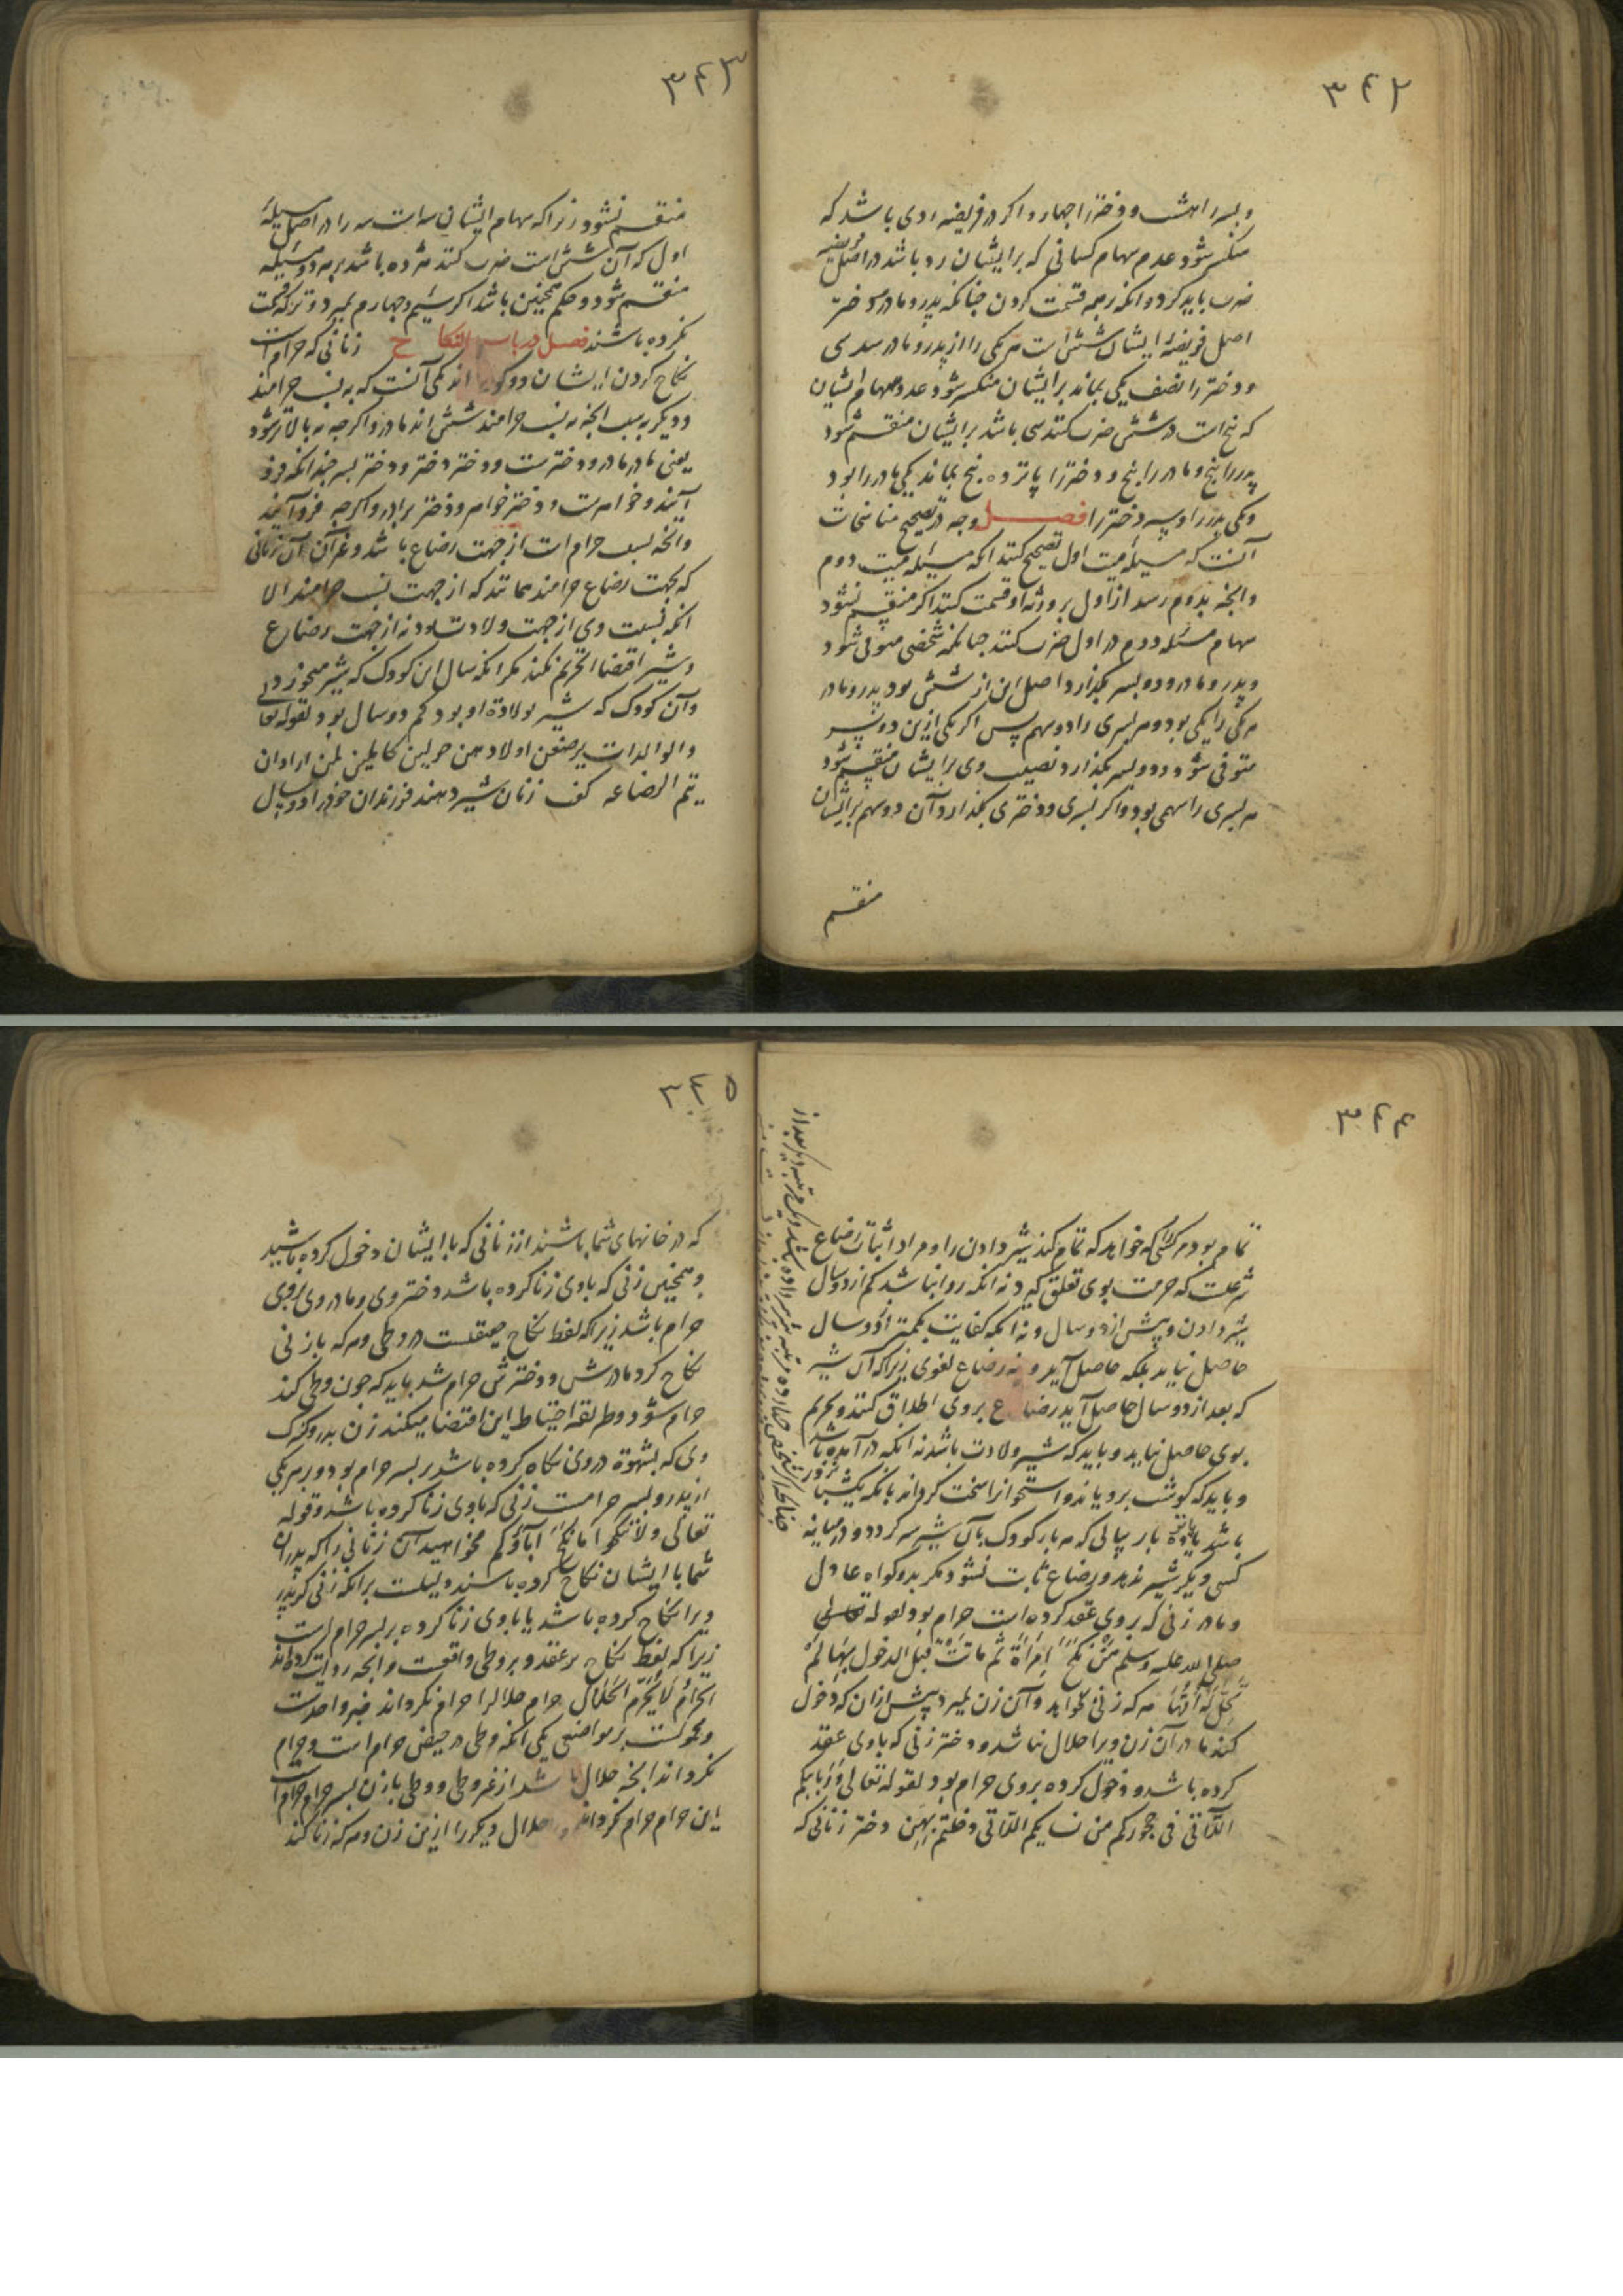 ۳۴۲
و پسر را هشت و دختر را چهار و اگر در فریضه ردی باشد که
منکسر شود عدد سهام کسانی که بر ایشان رد باشد در اصل فریضه
ضرب باید کرد و آنکه بر همه قسمت کردن چنانکه پدر و مادر و دختر
اصل فریضهٔ ایشان شش است هر یکی را از پدر و مادر سدسی
و دختر را نصف یکی بماند بر ایشان منکسر شود عدد سهام ایشان
که پنج است در شش ضرب کنند سی باشد بر ایشان منقسم شود
پدر را پنج و مادر را پنج و دختر را پانزده پنج بماند یکی مادر را بود
و یکی پدر را و سه دختر را فصل وجه در تصحیح مناسخات
آنست که مسیله میت اول تصحیح کنند آنکه مسیله میت دوم
و آنچه بدوم رسد از اول بر ورثه او قسمت کنند اگر منقسم نشود
سهام مسئله دوم در اول ضرب کنند چنانکه شخصی متوفی شود
و پدر و مادر و دو پسر بگذارد اصل این از شش بود پدر و مادر
هر یکی را یکی بود و هر پسری را دو سهم پس اگر یکی ازین دو پسر
متوفی شود و دو پسر بگذارد نصیب وی بر ایشان منقسم شود
هر پسری را سهمی بود و اگر پسری و دختری بگذارد آن دو سهم بر ایشان
منقسم
۳۴۳
منقسم نشود زیرا که سهام ایشان سه است سه را در اصل مسیله
اول که آن شش است ضرب کنند هژده باشد بر هر دو مسیله
منقسم شود و حکم همچنین باشد اگر سیم و چهارم بمیرد و ترکه قسمت
نکرده باشند فصل در باب النکاح زنانی که حرام است
نکاح کردن ایشان دو گونه اند یکی آنست که به نسب حرامند
و دیگر به سبب آنچه به نسب حرامند شش اند مادر و اگر چه به بالاتر شود
یعنی مادر مادر و دخترست و دختر دختر و دختر پسر چندانکه فرو
آیند و خواهرست و دختر خواهر و دختر برادر و اگر چه فرو آیند
و آنچه بسبب حرام است از جهت رضاع باشد و غیر آن آن زنانی
که بجهت رضاع حرامند همانند که از جهت نسب حرامند الا
آنکه نسبت وی از جهت ولادتست و نه از جهت رضاع
و شیر اقتضا التحریم نکند مگر آنکه سال این کودک که شیر میخورد
و آن کودک که شیر بولادة او بود کم دو سال بود لقوله تعالی
والوالدات یرضعن اولادهن حولین کاملین لمن اراد ان
یتم الرضاعه گفت زنان شیر دهند فرزندان خود را دو سال
۳۴۴
تمام بود هر کسی که خواهد که تمام کند شیر دادن را و مراد اثبات رضاع
شرعیست که حرمت بوی تعلق گیرد نه آنکه روا نباشد کم از دو سال
شیر دادن و بیش از دو سال و نه آنکه کفایت بکمتر از دو سال
حاصل نیاید بلکه حاصل آید و نه رضاع لغوی زیرا که آن شیر
که بعد از دو سال حاصل آید رضاع بروی اطلاق کنند و تحریم
بوی حاصل نیاید و باید که شیر ولادت باشد نه آنکه در آمده باشد
و باید که گوشت برویاند و استخوان را سخت گرداند بآنکه یکشبانروز
باشد یا پانزده بار پیاپی که هر بار کودک بآن شیر سیر گردد و در میانه
کسی دیگر شیر ندهد و رضاع ثابت نشود مگر بدو گواه عادل
و مادر زنی که بروی عقد کرده است حرام بود لقوله
صلی الله علیه وسلم من نکح امرأة ثم ماتت قبل الدخول بها لم
تحل له امها هر که زنی بخواهد و آن زن بمیرد پیش از آن که دخول
کند مادر آن زن ویرا حلال نباشد و دختر زنی که با وی عقد
کرده باشد و دخول کرده بروی حرام بود لقوله تعالی وربائبکم
اللاتی فی حجورکم من نسایکم اللاتی دخلتم بهن دختر زنانی که
۳۴۵
که در خانهای شما باشند از زنانی که با ایشان دخول کرده باشید
و همچنین زنی که با وی زنا کرده باشد دختر وی و مادر وی بروی
حرام باشد زیرا که لفظ نکاح حقیقتست در وطی و هر که با زنی
نکاح کرد مادرش و دخترش حرام شد باید که چون وطی کند
حرام شود و طریقه احتیاط این اقتضا میکند زن پدر و کنیزک
وی که بشهوة در وی نگاه کرده باشد بر پسر حرام بود و بر هر یکی
از پدر و پسر حرامست زنی که با وی زنا کرده باشد و قوله
تعالی ولا تنکحوا ما نکح آباؤکم مخواهید آن زنانی را که پدران
شما با ایشان نکاح کرده باشند دلیلست بر آنکه زنی که پدر
ویرا نکاح کرده باشد یا با وی زنا کرده بر پسر حرام است
زیرا که لفظ نکاح بر عقد و بر وطی واقعست و آنچه روایت کرده‌اند
الحرام لا یحرم الحلال حرام حلال را حرام نگرداند خبر واحدست
و محمولست بر مواضعی یکی آنکه وطی در حیض حرام است و حرام
نگرداند آنچه حلال باشد از غیر وطی و وطی با زن پسر حرام حرام است
این حرام حرام نگرداند حلال دیگر را ازین زن و هر که زنا کند